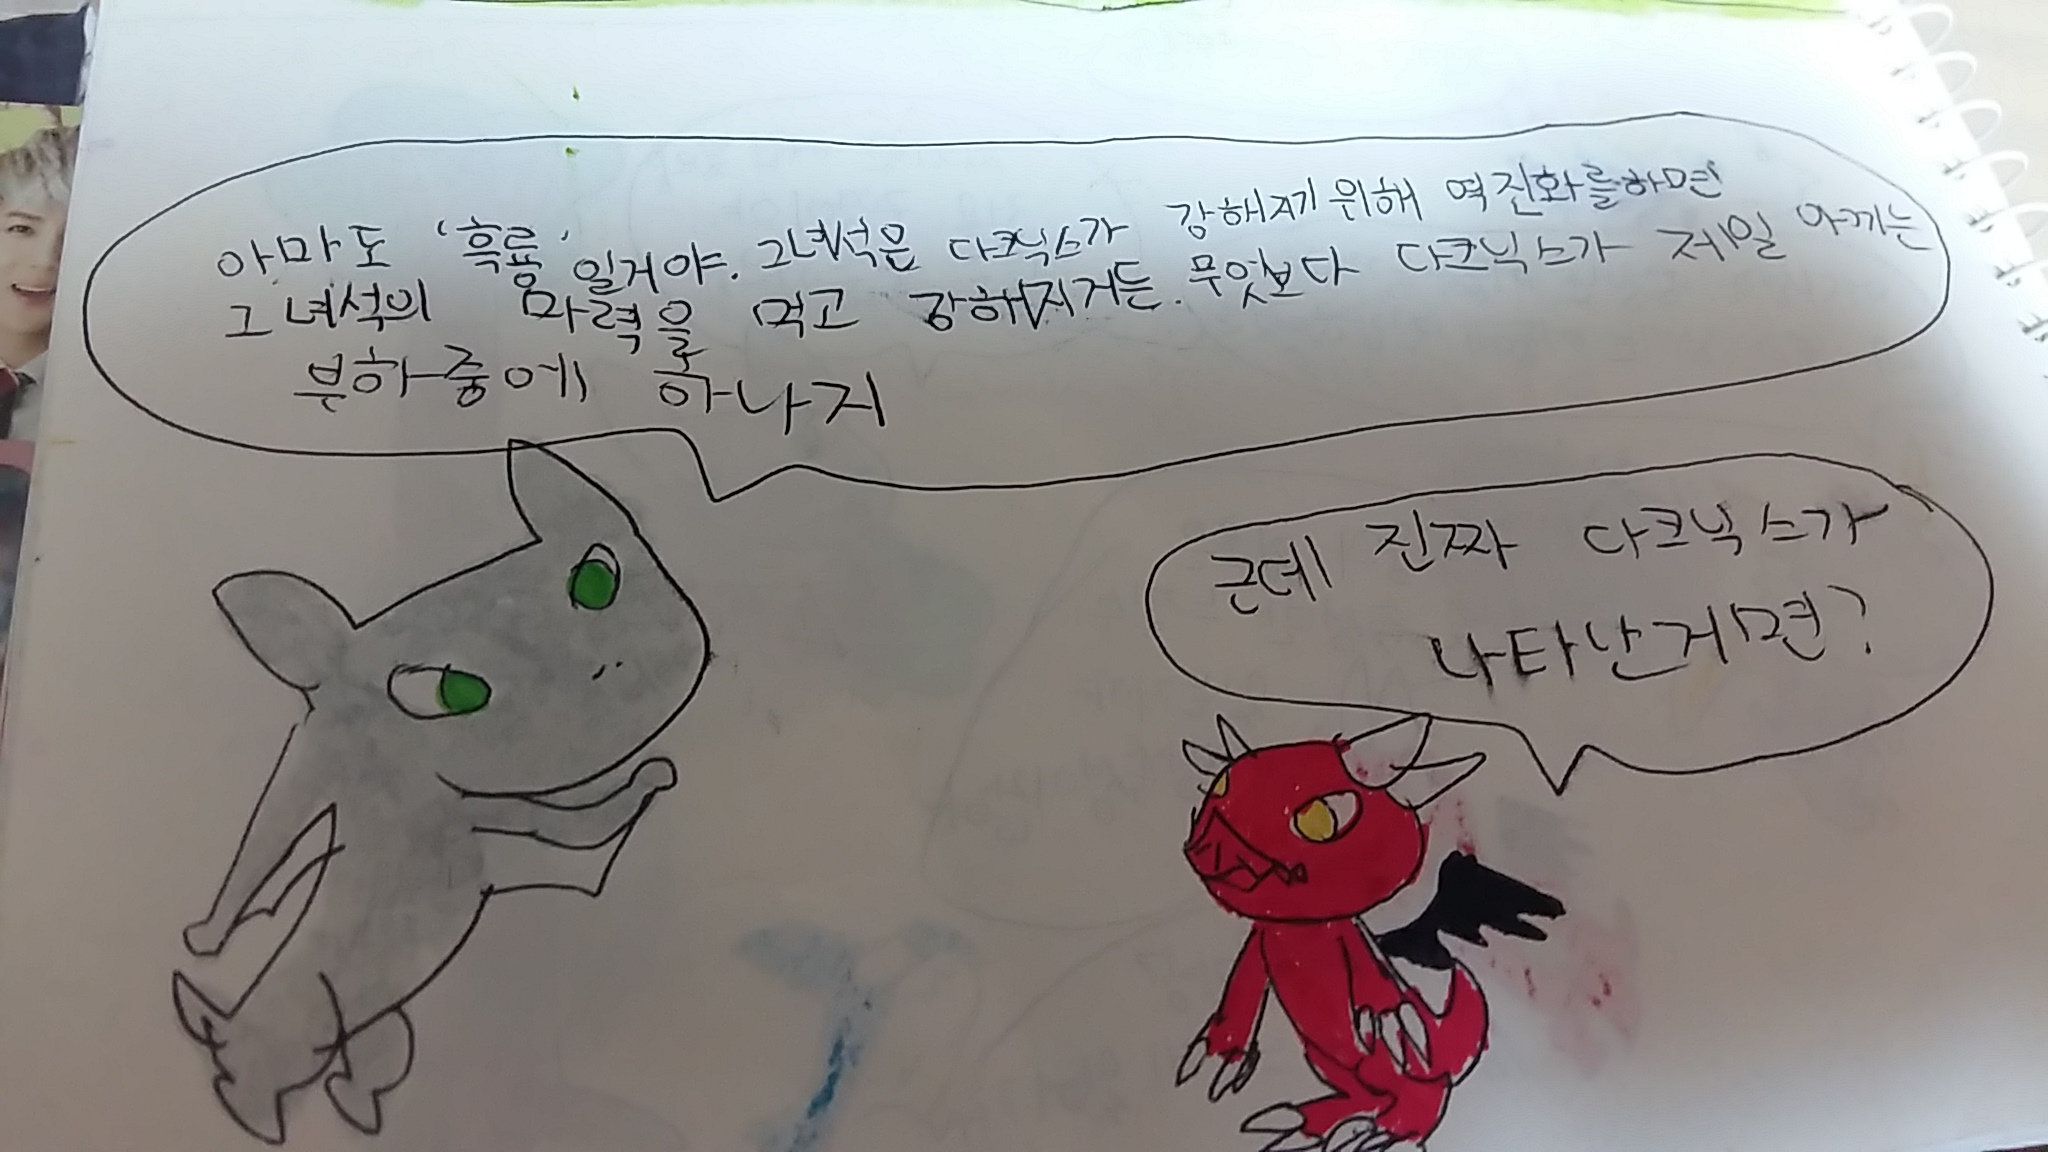 아마도 '흑룡'일거야. 그녀석은 다크닉스가 강해지기 위해 역진화를하면
그녀석의 마력을 먹고 강해지거든. 무엇보다 다크닉스가 제일 아끼는
부하중에 하나지
근데 진짜 다크닉스가
나타난게면?